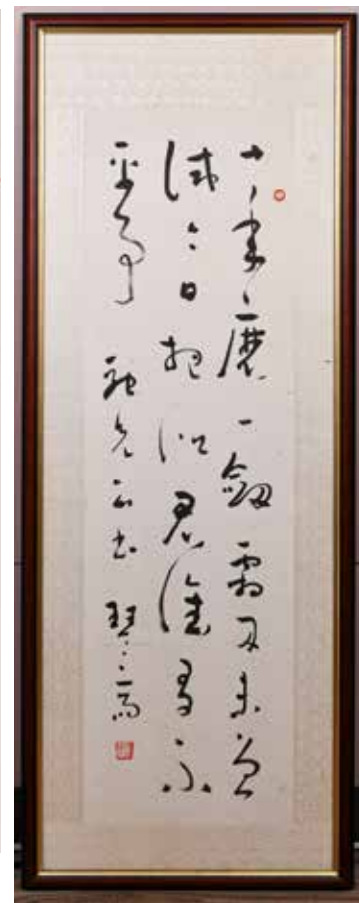 十年磨一劍霜刃未曾
試今日把似君誰有不
平事